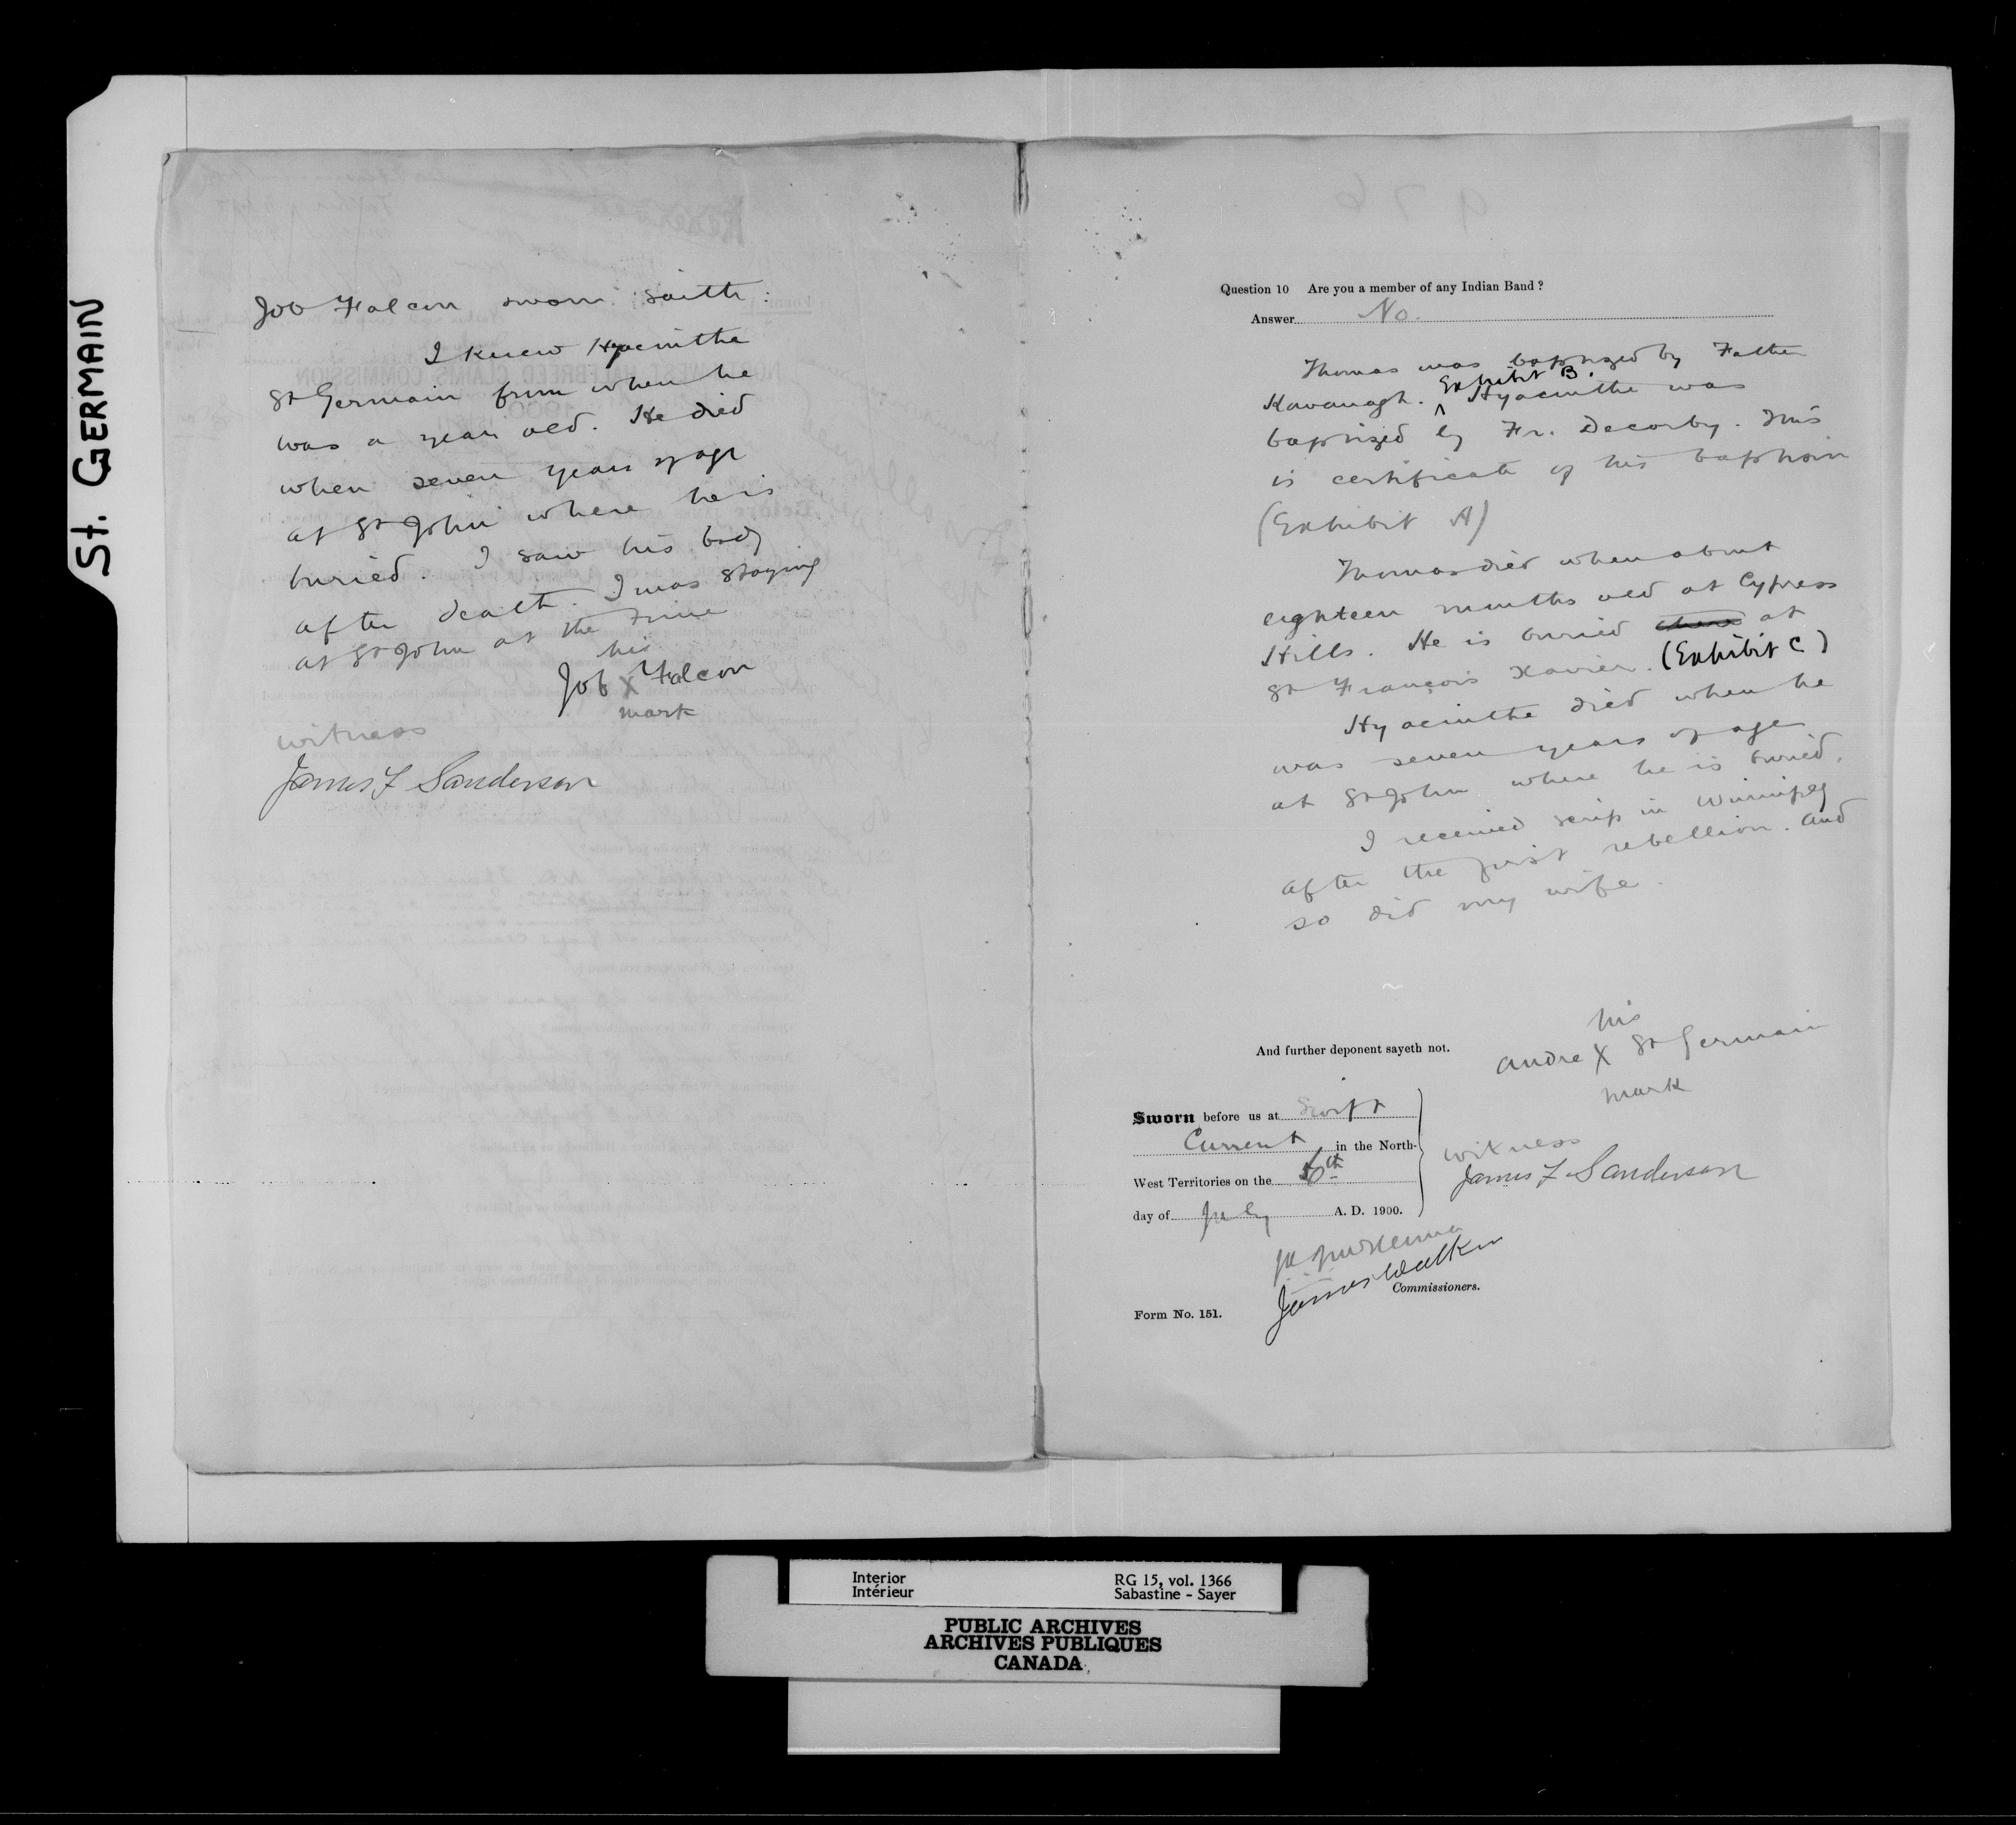 St. GERMAIN
Job Falcon sworn saith:
I knew Hyacinthe
St Germain from when he
was a year old. He died
when seven years of age
at St John where he is
buried. I saw his body
after death. I was staying
at St John at the time
his
Job X Falcon
mark
witness
James F Sanderson
Question 10 Are you a member of any Indian Band ?
Answer No.
Thomas was baptized by Father
Exhibit B.
Kavanagh. ^ Hyacinthe was
baptized by Fr. Decorby. This
is certificate of his baptism
(Exhibit A)
Thomas died when about
eighteen months old at Cypress
Hills. He is buried at
St François Xavier. (Exhibit C)
Hyacinthe died when he
was seven years of age
at St John where he is buried.
I received scrip in Winnipeg
after the first rebellion. and
so did my wife.
And further deponent sayeth not.
his
Andre X St Germain
mark
Sworn before us at Swift
Current in the North-
West Territories on the 6th
day of July A. D. 1900.
witness
James F Sanderson
James Walker
Commissioners.
Form No. 151.
Interior
Intérieur
RG 15, vol. 1366
Sabastine - Sayer
PUBLIC ARCHIVES
ARCHIVES PUBLIQUES
CANADA